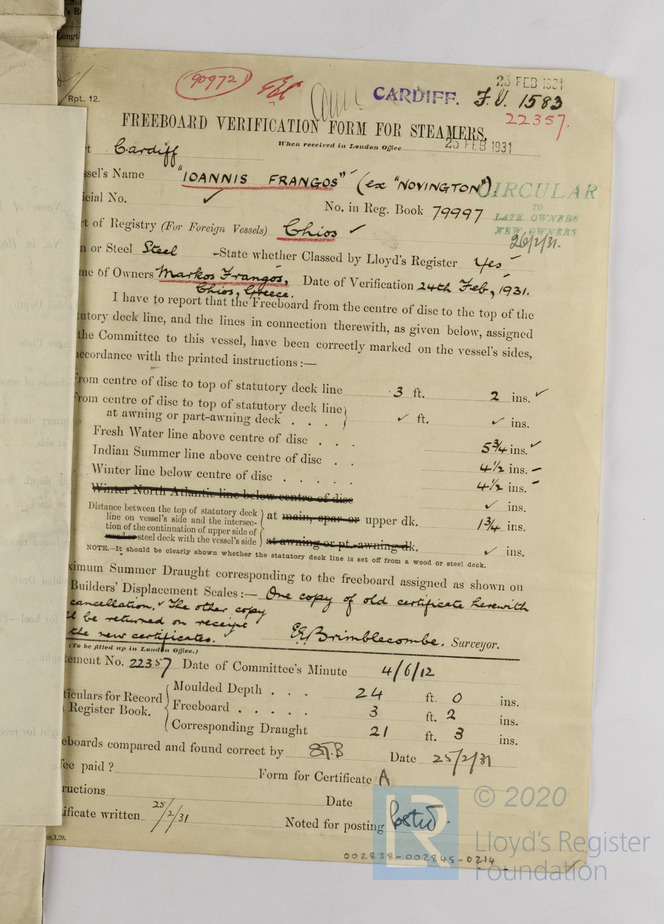 23 FEB 1931
90972
CARDIFF. F.V. 1583
Rpt. 12.
22357.
FREEBOARD VERIFICATION FORM FOR STEAMERS.
When received in London Office 25 FEB 1931
Cardiff
ssel's Name "IOANNIS FRANGOS" (ex "NOVINGTON")
CIRCULAR
TO
LATE OWNERS
NEW OWNERS
26/2/31.
icial No. ✓ No. in Reg. Book 79997
t of Registry (For Foreign Vessels) Chios ✓
n or Steel Steel -State whether Classed by Lloyd's Register Yes
me of Owners Markos Frangos, Date of Verification 24th Feb, 1931.
Chios, Greece.
I have to report that the Freeboard from the centre of disc to the top of the
tutory deck line, and the lines in connection therewith, as given below, assigned
the Committee to this vessel, have been correctly marked on the vessel's sides,
accordance with the printed instructions :—
From centre of disc to top of statutory deck line 3 ft. 2 ins. ✓
From centre of disc to top of statutory deck line
at awning or part-awning deck . . . ✓ ft. ✓ ins.
Fresh Water line above centre of disc . . . 5¾ ins. ✓
Indian Summer line above centre of disc . . 4½ ins. –
Winter line below centre of disc . . . . . 4½ ins. –
Winter North Atlantic line below centre of disc ✓ ins.
Distance between the top of statutory deck
line on vessel's side and the intersec-
tion of the continuation of upper side of
steel deck with the vessel's side
at main, spar or upper dk. 1¾ ins.
at awning or pt.-awning dk. ✓ ins.
NOTE.—It should be clearly shown whether the statutory deck line is set off from a wood or steel deck.
ximum Summer Draught corresponding to the freeboard assigned as shown on
Builders' Displacement Scales :— One copy of old certificate herewith
cancellation. The other copy
ll be returned on receipt
the new certificates. E.G. Brimblecombe. Surveyor.
(To be filled up in London Office.)
tement No. 22357 Date of Committee's Minute 4/6/12
ticulars for Record
Register Book.
Moulded Depth . . . 24 ft. 0 ins.
Freeboard . . . . . 3 ft. 2 ins.
Corresponding Draught 21 ft. 3 ins.
eboards compared and found correct by Date 25/2/31
ee paid ? Form for Certificate A
ructions Date
ificate written 25/2/31 Noted for posting Posted.
002838-002845-0214
LR
© 2020
Lloyd's Register
Foundation